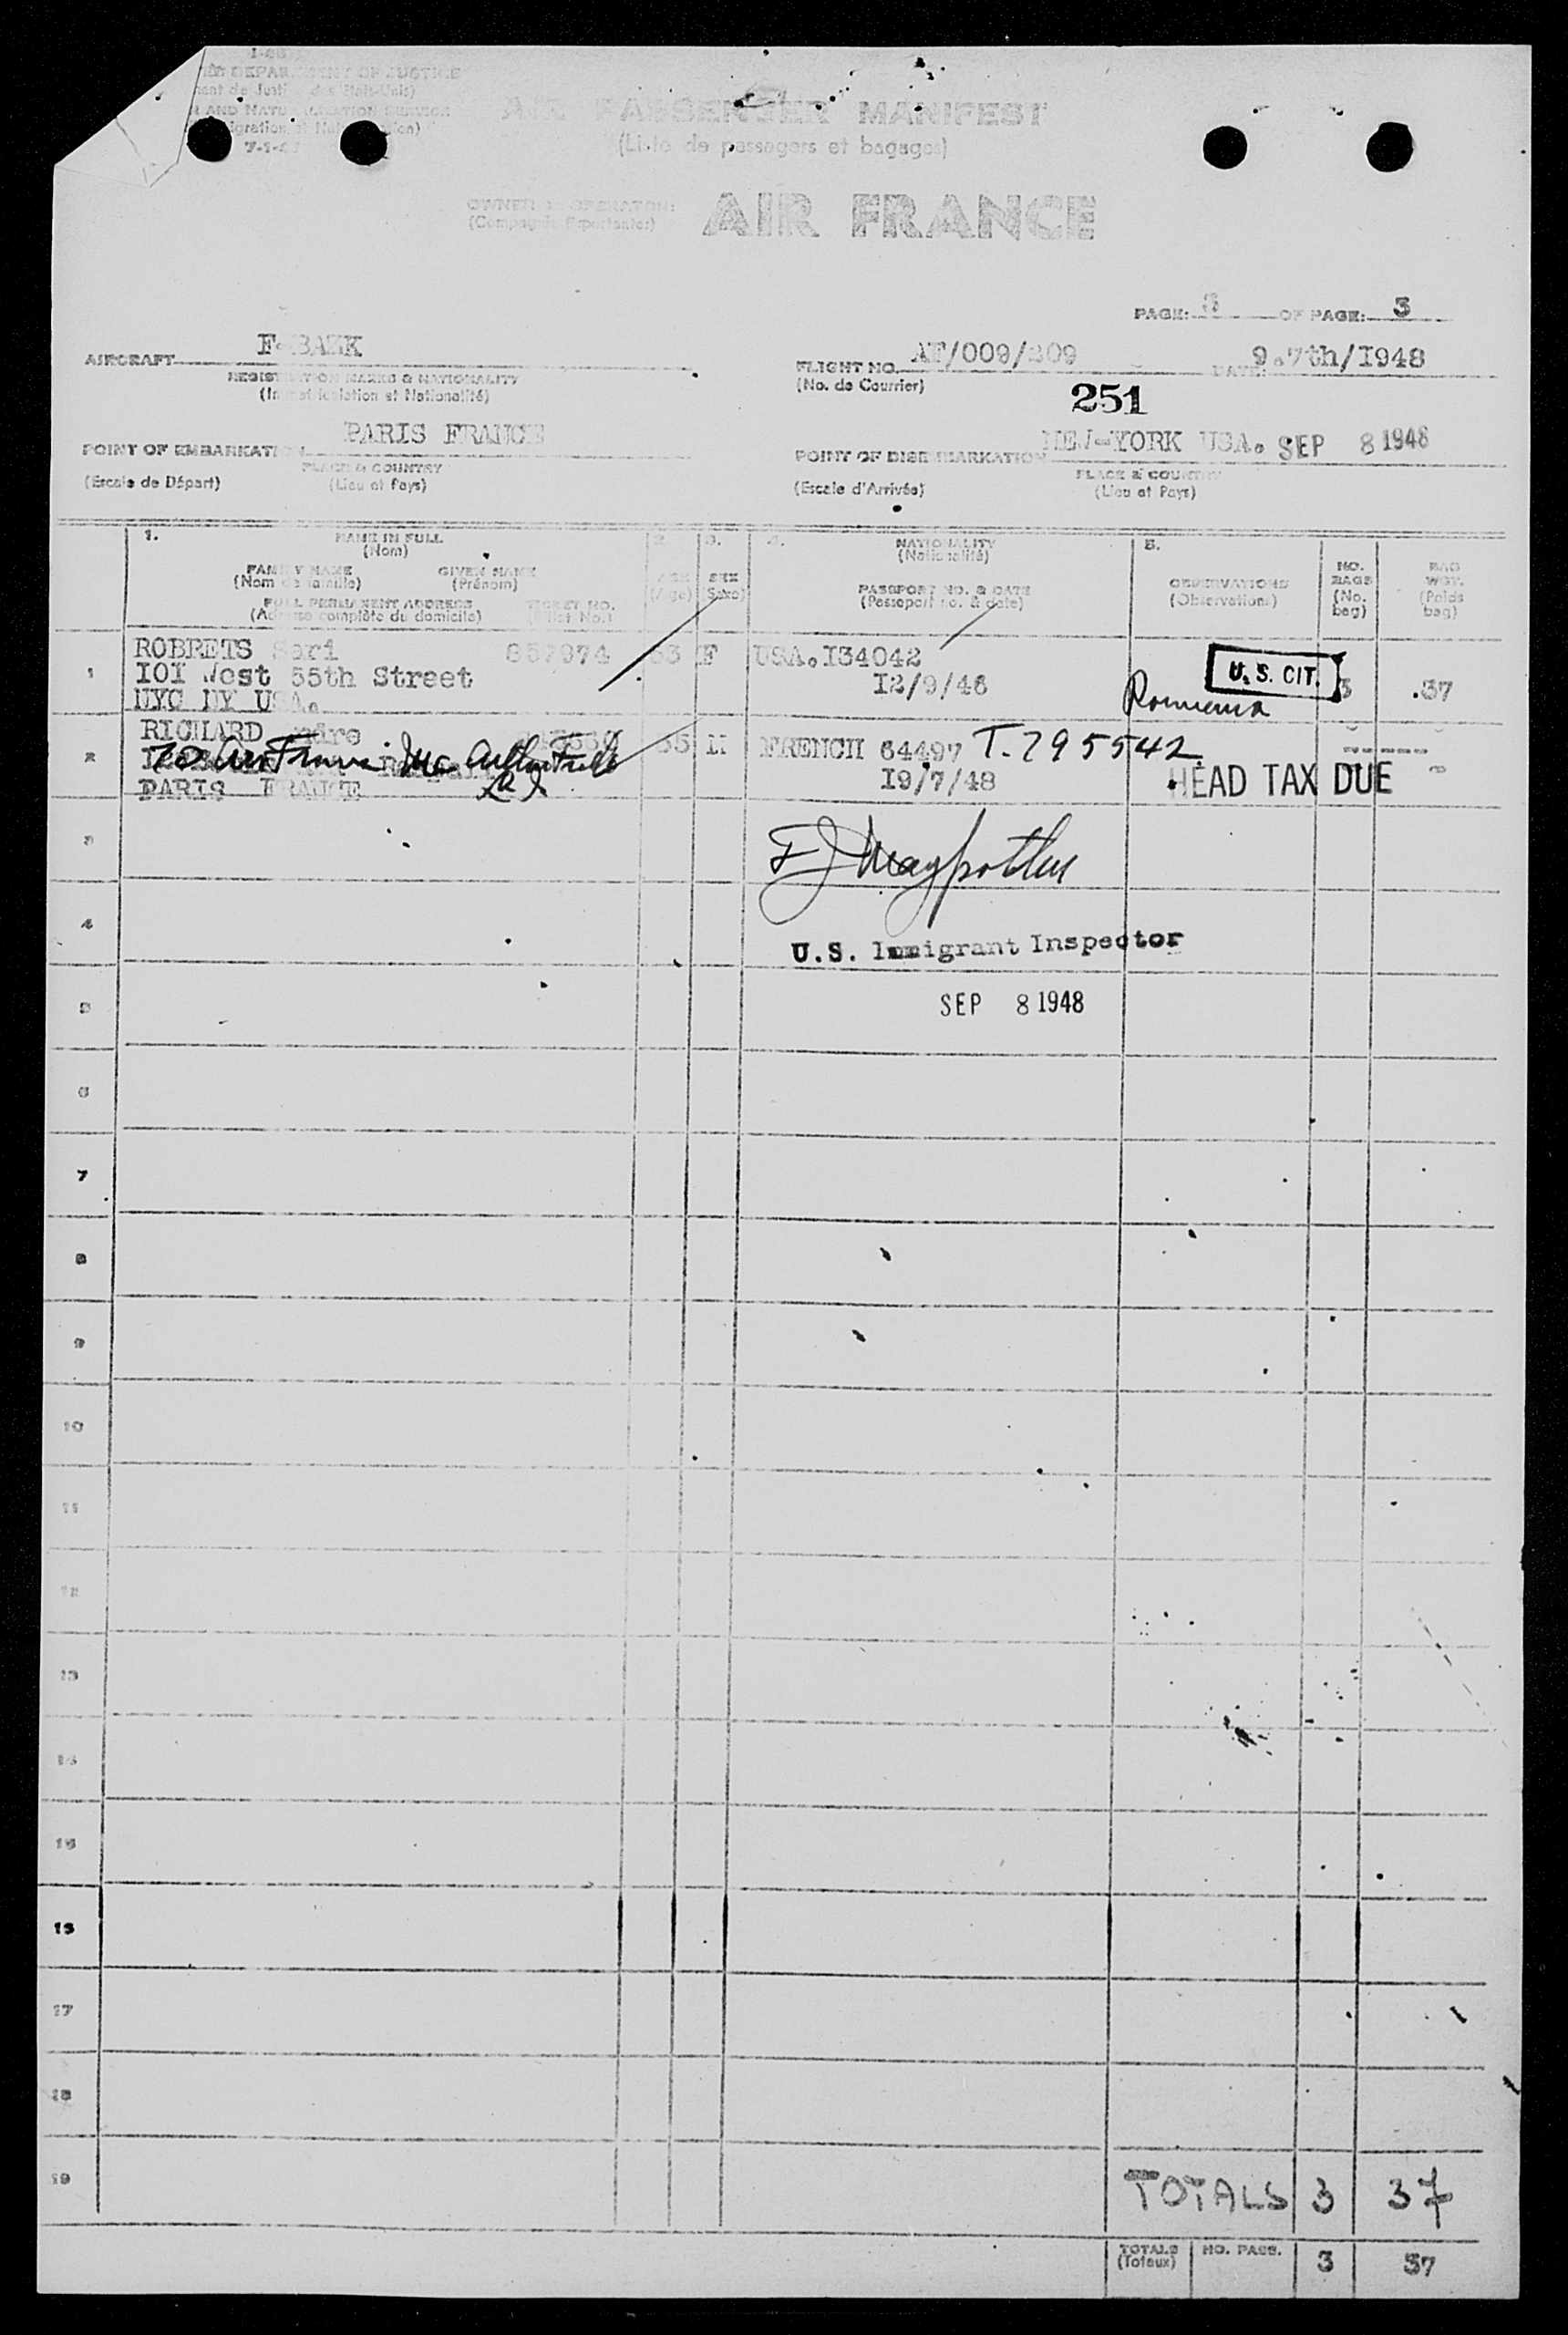 DEPARTMENT OF JUSTICE
AND NATURALIZATION SERVICE
AIR PASSENGER MANIFEST
(Liste de passagers et bagages)
OWNER OPERATOR:
(Compagnie
AIR FRANCE
PAGE: 3 OF PAGE: 3
AIRCRAFT
REGISTRATION MARKS & NATIONALITY
(Immatriculation et Nationalité)
FLIGHT NO. AF/009/209
DATE: 9.7th/I948
(No. de Courrier)
251
POINT OF EMBARKATION PARIS FRANCE
PLACE & COUNTRY
(Escale de Départ) (Lieu et Pays)
POINT OF DISEMBARKATION NEW-YORK USA. SEP 8 1948
PLACE & COUNTRY
(Escale d'Arrivée) (Lieu et Pays)
1. NAME IN FULL
(Nom)
FAMILY NAME GIVEN NAME
(Nom de famille) (Prénom)
FULL PERMANENT ADDRESS TICKET NO.
(Adresse complète du domicile) (Billet No.)
2. AGE
(Age)
3. SEX
(Sexe)
4. NATIONALITY
(Nationalité)
PASSPORT NO. & DATE
(Passeport no. & date)
5. OBSERVATIONS
(Observations)
NO. BAGS
(No. bag)
BAG WGT.
(Poids bag)
1 ROBRETS Sari 857974 53 F USA.I34042 U.S. CIT. 3 .37
IOI West 55th Street I2/9/46 Roumania
NYC NY USA.
2 RICHARD M FRENCH 64497 T-795542
Air France I9/7/48 HEAD TAX DUE
PARIS FRANCE
3
4
U.S. Immigrant Inspector
5 SEP 8 1948
6
7
8
9
10
11
12
13
14
15
15
17
18
19 TOTALS 3 37
TOTALS NO. PASS. 3 37
(Totaux)